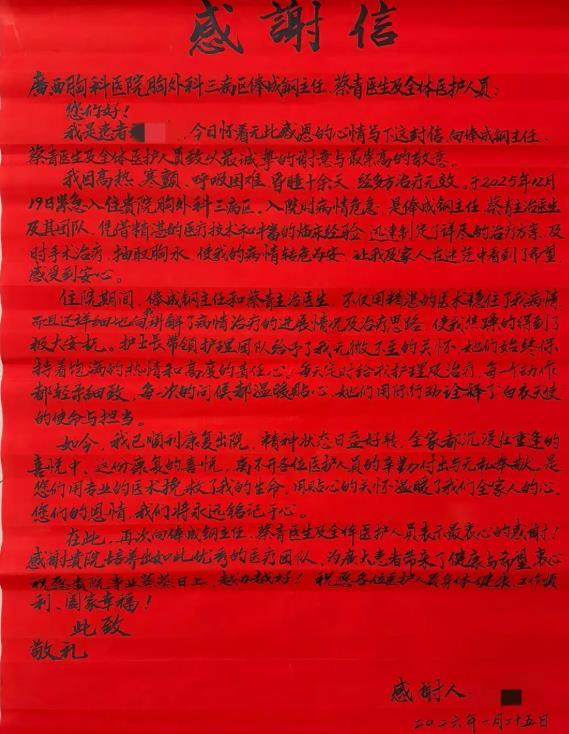 感謝信
廣西胸科医院胸外科三病区俸成钢主任、蔡青医生及全体医护人员:
您们好!
我是患者 ，今日怀着无比感恩的心情写下这封信，向俸成钢主任、
蔡青医生及全体医护人员致以最诚挚的谢意与最崇高的敬意。
我因高热、寒颤、呼吸困难、昏睡十余天，经多方治疗无效。于2025年12月
19日紧急入住贵院胸外科三病区。入院时病情危急，是俸成钢主任、蔡青主治医生
及其团队，凭借精湛的医疗技术和丰富的临床经验，迅速制定了详尽的治疗方案，及
时手术治疗，抽取胸水，使我的病情转危为安，让我及家人在迷茫中看到了希望，
感受到安心。
住院期间，俸成钢主任和蔡青主治医生，不仅用精湛的医术稳住了我病情，
而且还详细地向我讲解了病情治疗的进展情况及治疗思路，使我焦躁的得到了
极大安抚。护士长带领护理团队给予了我无微不至的关怀，她们始终保
持着饱满的热情和高度的责任心，每天定时给我护理及治疗，每一个动作
都轻柔细致，每一次的问候都温暖贴心，她们用行动诠释了白衣天使
的使命与担当。
如今，我已顺利康复出院，精神状态日益好转，全家都沉浸在重逢的
喜悦中，这份康复的喜悦，离不开各位医护人员的辛勤付出与无私奉献。是
您们用专业的医术挽救了我的生命，用贴心的关怀温暖了我们全家人的心。
您们的恩情，我们将永远铭记于心。
在此，再次向俸成钢主任、蔡青医生及全体医护人员表示最衷心的感谢!
感谢贵院培养出如此优秀的医疗团队，为广大患者带来了健康与希望，衷心
祝愿贵院事业蒸蒸日上，越办越好! 祝愿各位医护人员身体健康、工作顺
利、阖家幸福!
此致
敬礼
感謝人
二〇二六年一月二十五日